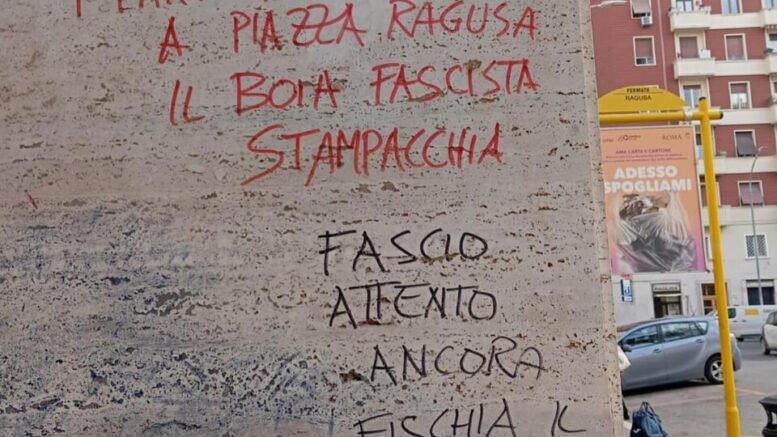 A PIAZZA RAGUSA
IL BOIA FASCISTA
STAMPACCHIA
FASCIO
ATTENTO
ANCORA
FISCHIA IL
FERMATA
RAGUSA
ROMA
AMA CARTA E CARTONE
ADESSO
SPOGLIAMI